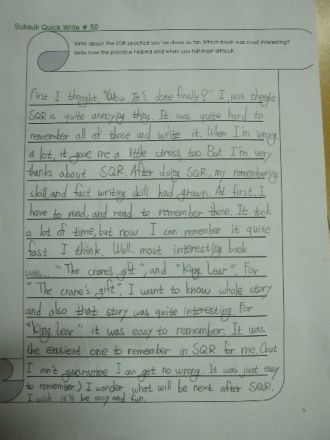 Suksuk Quick Write # 50
Write about the SQR practice you've done so far. Which book was most interesting?
Write how the practice helped and when you felt most difficult.
First I thought "Wow It's done finally!" I was thought
SQR is quite annoying thing. It was quite hard to
remember all of those and write it. When I'm wrong
a lot, it gave me a little stress too. But I'm very
thanks about SQR. After doing SQR, my remembering
skill, and fast writing skill had grown. At first, I
have to read, and read to remember those. It took
a lot of time, but now I can remember it quite
fast I think. Well.. most interesting book
was.. "The crane's gift", and "King Lear". For
"The crane's gift", I want to know whole story
and also that story was quite interesting. For
"King lear" it was easy to remember. It was
the easiest one to remember in SQR for me. (but
I can't guarantee I can get no wrong. It was just easy
to remember.) I wonder what will be next after SQR.
I wish it'll be easy and fun.